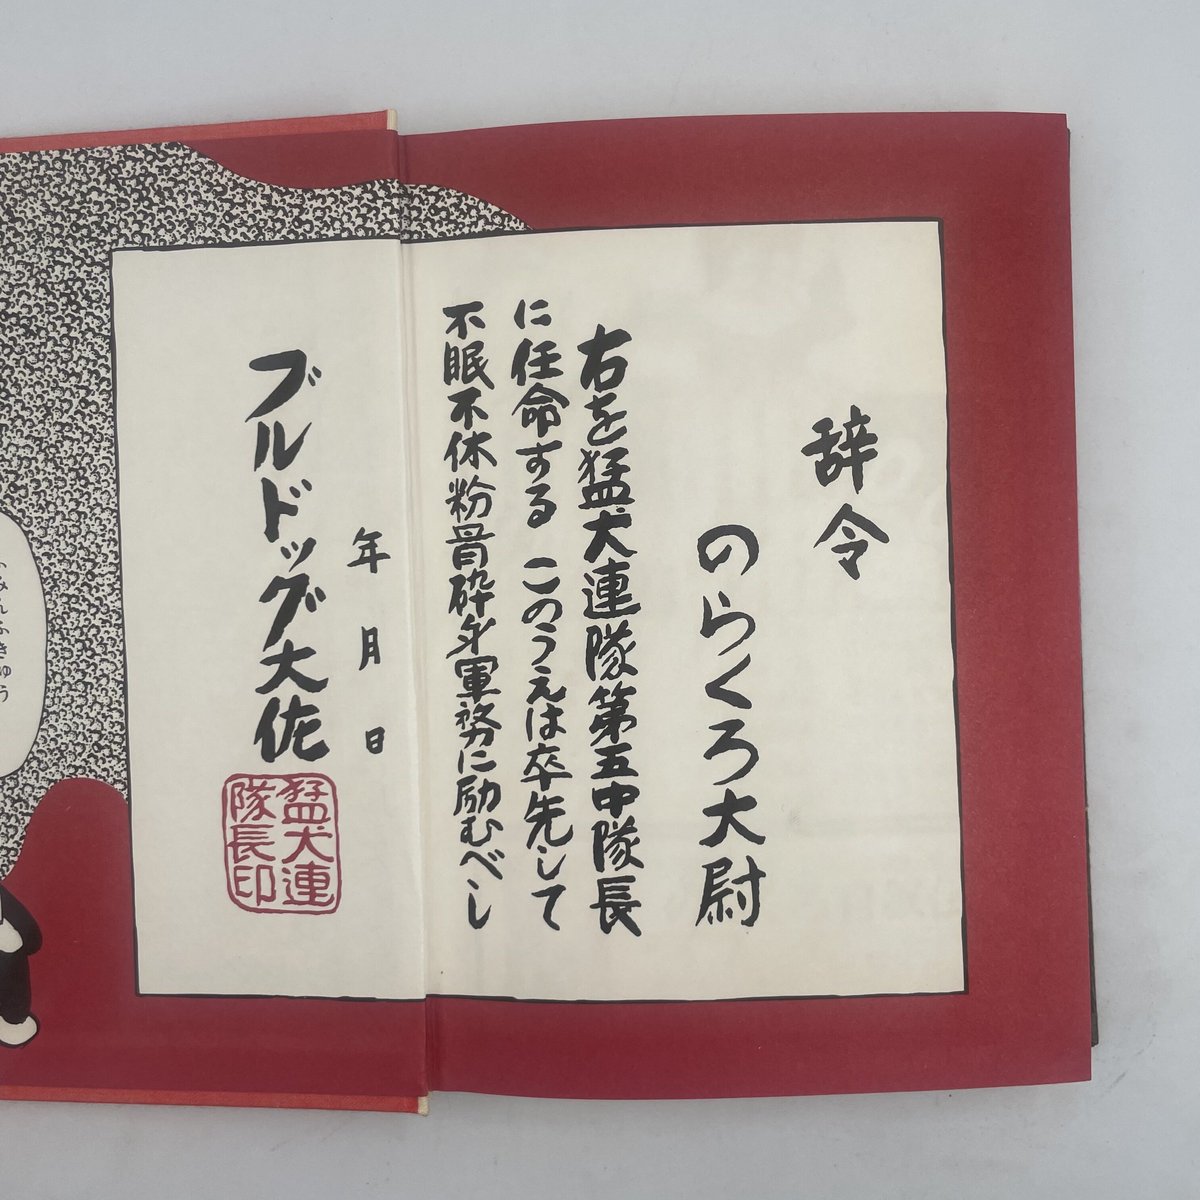 辞令
のらくろ大尉
右を猛犬連隊第五中隊長
に任命する このうえは卒先して
不眠不休粉骨砕身軍務に励むべし
年 月 日
ブルドッグ大佐
猛犬連
隊長印